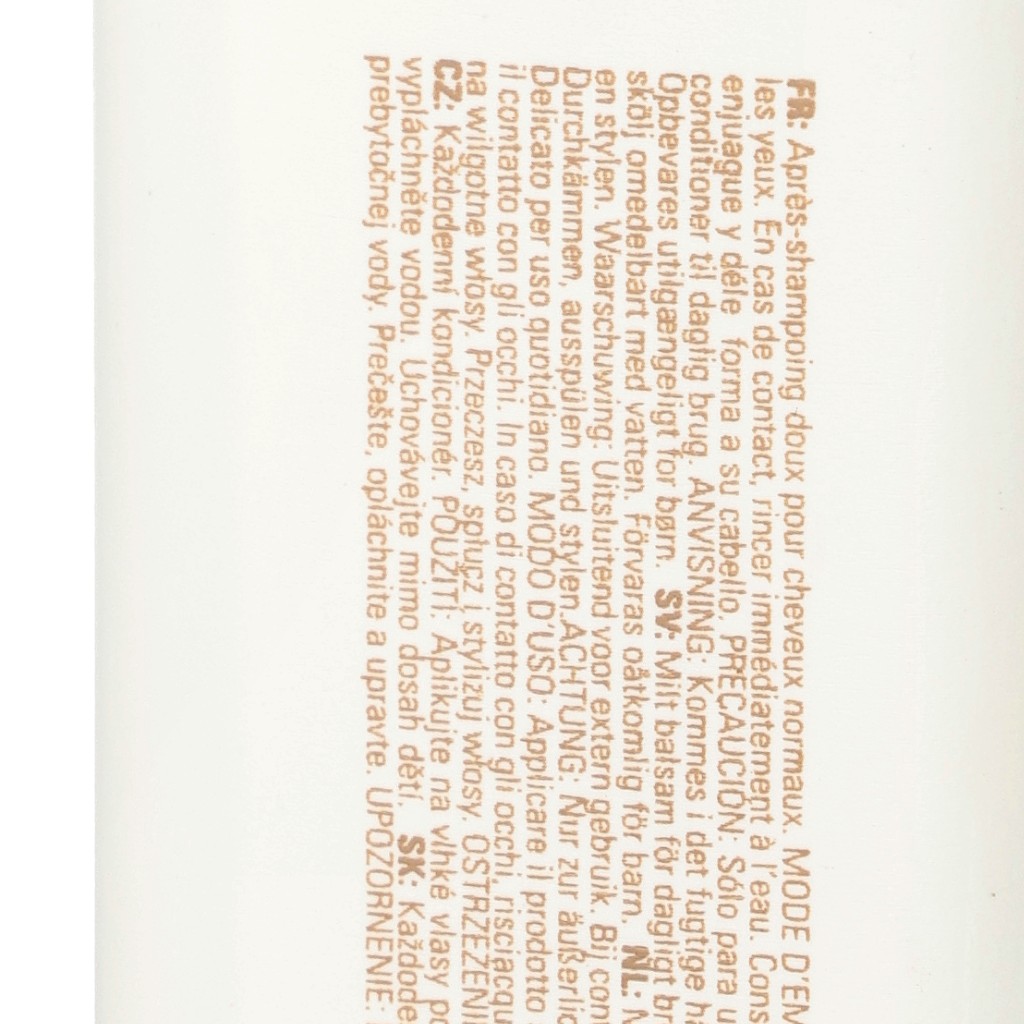 FR: Après-shampoing doux pour cheveux normaux. MODE D'EM
les yeux. En cas de contact, rincer immédiatement à l'eau. Cons
enjuague y déle forma a su cabello. PRECAUCIÓN: Sólo para u
conditioner til daglig brug. ANVISNING: Kommes i det fugtige h
Opbevares utilgængeligt for børn. SV: Milt balsam för dagligt br
skölj omedelbart med vatten. Förvaras oåtkomlig för barn. NL: M
en stylen. Waarschuwing: Uitsluitend voor extern gebruik. Bij con
Durchkämmen, ausspülen und stylen.ACHTUNG: Nur zur äußerlic
Delicato per uso quotidiano. MODO D'USO: Applicare il prodotto
il contatto con gli occhi. In caso di contatto con gli occhi, risciacqu
na wilgotne włosy. Przeczesz, spłucz i stylizuj włosy. OSTRZEŻENI
CZ: Každodenní kondicionér. POUŽITÍ: Aplikujte na vlhké vlasy po
vypláchněte vodou. Uchovávejte mimo dosah dětí. SK: Každode
prebytočnej vody. Prečešte, opláchnite a upravte. UPOZORNENIE: